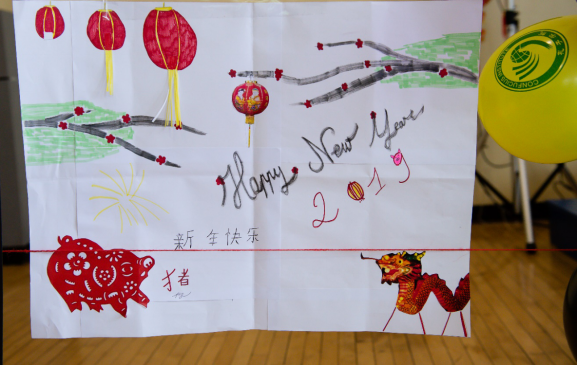 Happy New Year
2019
新年快乐
猪
CONFUCIUS